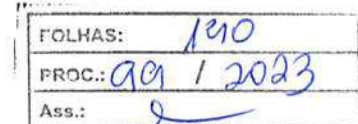 FOLHAS: 140
PROC.: 99 / 2023
Ass.: